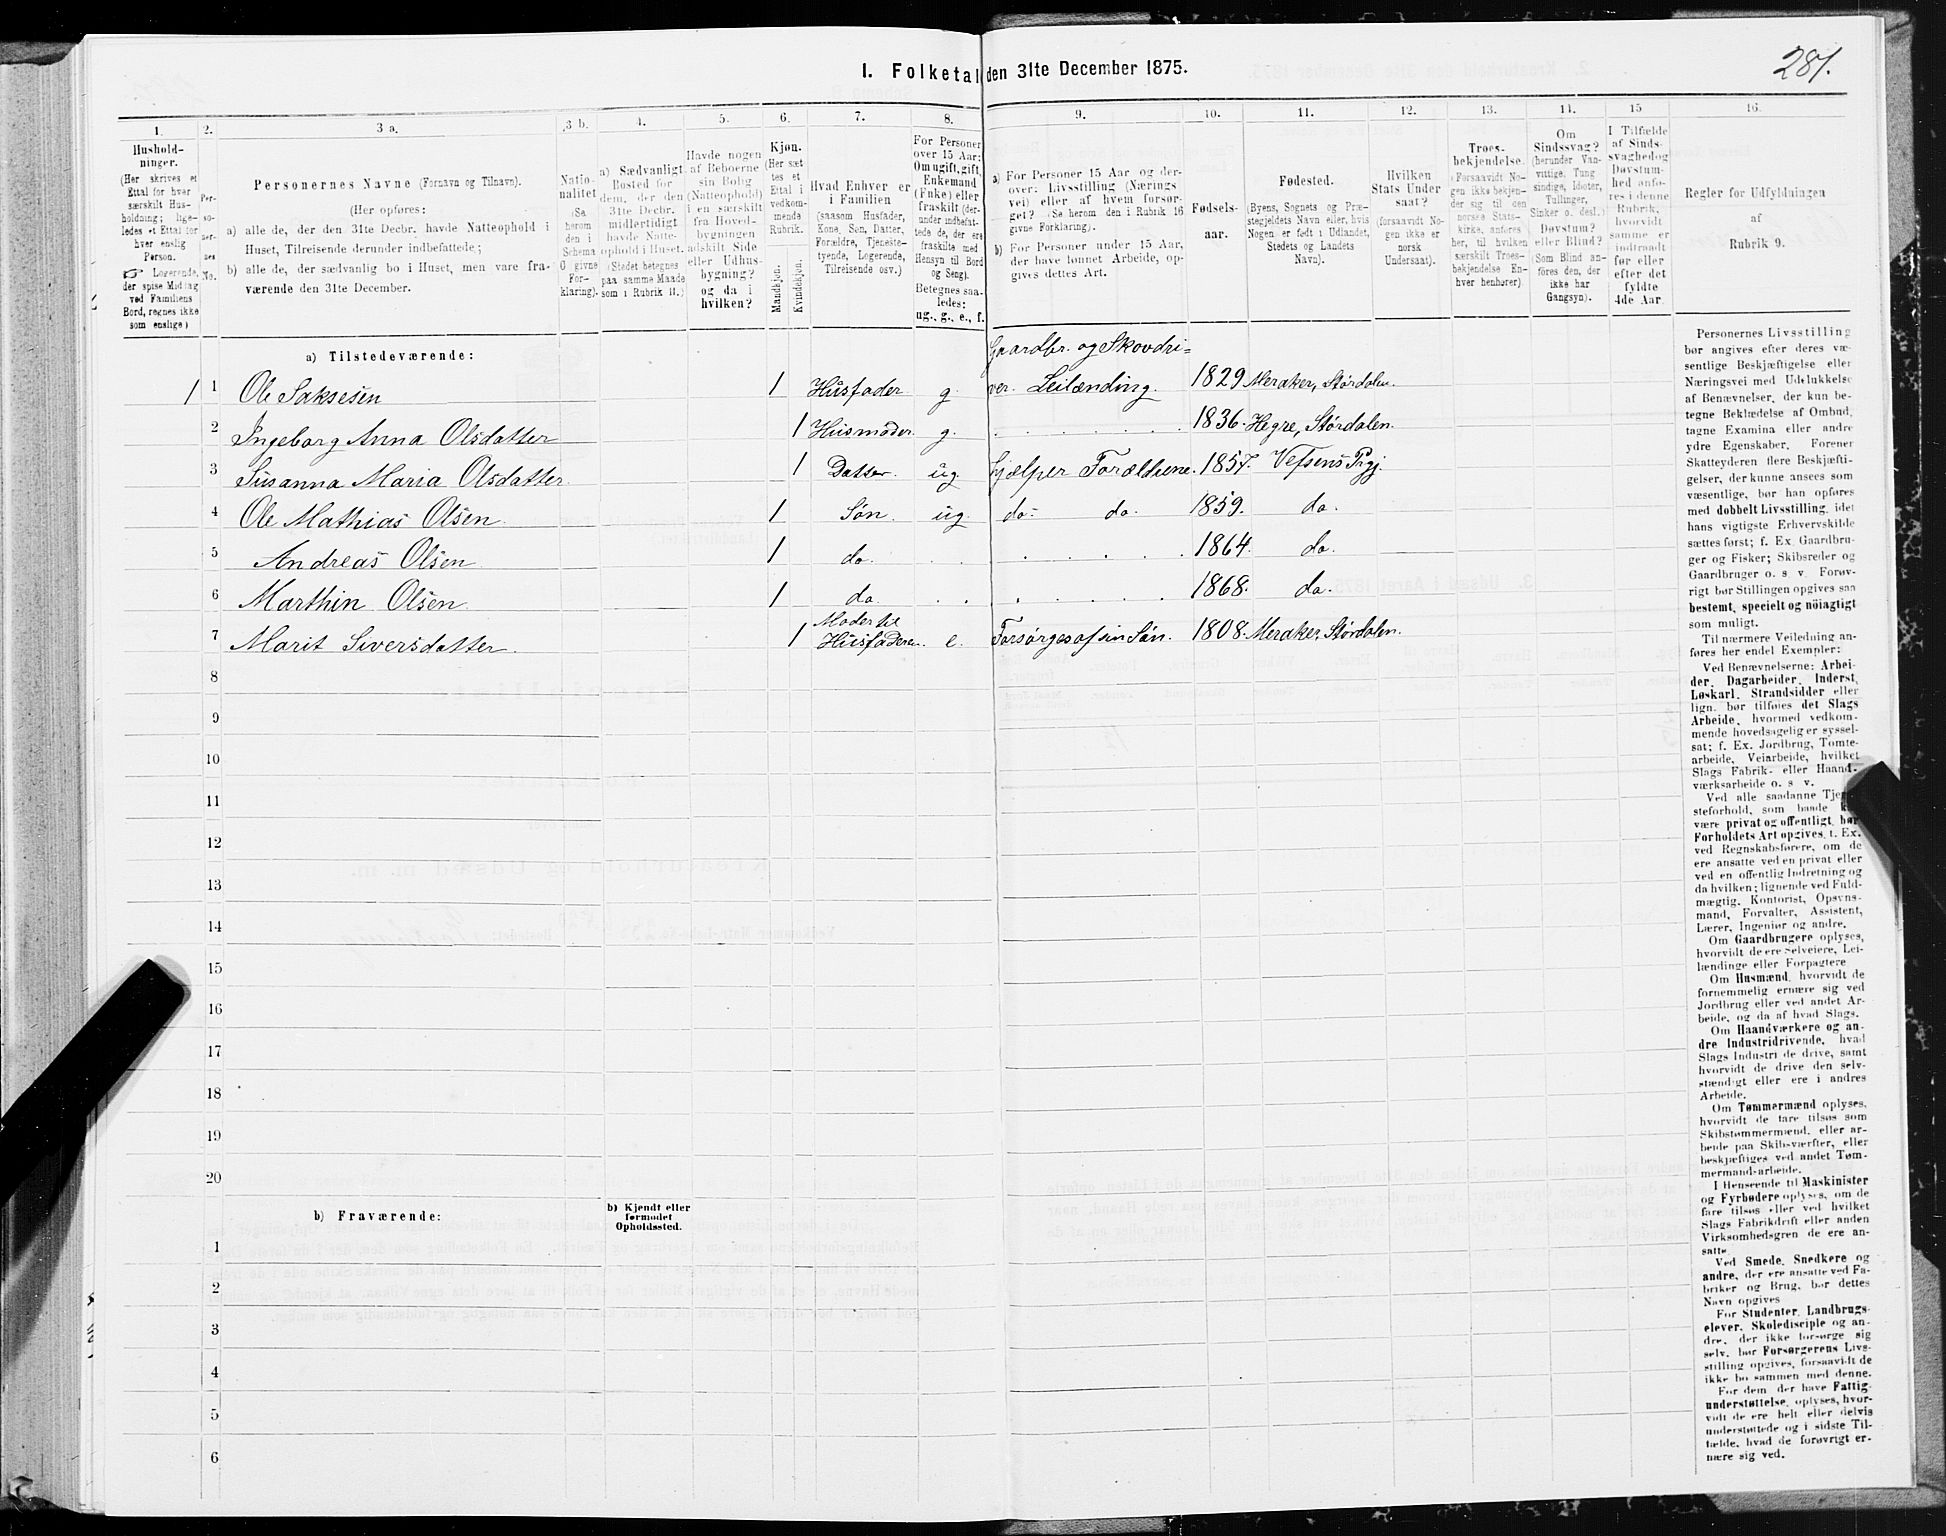 281.
I. Folketal den 31te December 1875.
1. 2. 3 a. 3 b. 4. 5. 6. 7. 8. 9. 10. 11. 12. 13. 14. 15 16.
Hushold-
ninger.
(Her skrives et
Ettal for hver
særskilt Hus-
holdning; lige-
ledes et Ettal for
hver enslig
Person.
☞ Logerende,
der spise Middag
ved Familiens
Bord, regnes ikke
som enslige)
Per-
so-
ner-
nes
No.
Personernes Navne (Fornavn og Tilnavn).
(Her opføres:
a) alle de, der den 31te Decbr. havde Natteophold i
Huset, Tilreisende derunder indbefattede;
b) alle de, der sædvanlig bo i Huset, men vare fra-
værende den 31te December.
Natio-
nalitet
(Se
herom
den i
Schema
O givne
For-
klaring).
a) Sædvanligt
Bosted for
dem, der den
31te Decbr.
midlertidigt
havde Natte-
ophold i Huset.
(Stedet betegnes
paa samme Maade
som i Rubrik 11.)
Havde nogen
af Beboerne
sin Bolig
(Natteophold)
i en særskilt
fra Hoved-
bygningen
adskilt Side
eller Udhus-
bygning?
og da i
hvilken?
Kjøn.
(Her sæt
tes et
Ettal i
vedkom-
mende
Rubrik.
Mandkjøn.
Kvindekjøn.
Hvad Enhver er
i Familien
(saasom Husfader,
Kone, Søn, Datter,
Forældre, Tjeneste-
tyende, Logerende,
Tilreisende osv.)
For Personer
over 15 Aar:
Om ugift, gift,
Enkemand
(Enke) eller
fraskilt (der-
under indbefat-
tede de, der ere
fraskilte med
Hensyn til Bord
og Seng).
Betegnes saa-
ledes:
ug., g., e., f.
a) For Personer 15 Aar og der-
over: Livsstilling (Nærings
vei) eller af hvem forsør-
get? (Se herom den i Rubrik 16
givne Forklaring).
b) For Personer under 15 Aar,
der have lønnet Arbeide, op-
gives dettes Art.
Fødsels-
aar.
Fødested.
(Byens, Sognets og Præ-
stegjeldets Navn eller, hvis
Nogen er født i Udlandet,
Stedets og Landets
Navn).
Hvilken
Stats Under
saat?
(forsaavidt No-
gen ikke er
norsk
Undersaat).
Troes-
bekjendelse.
(Forsaavidt No-
gen ikke bekjen-
der sig til den
norske Stats-
kirke, anføres
her, til hvilken
særskilt Troes-
bekjendelse En-
hver henhører).
Om
Sindssvag?
(herunder Van-
vittige, Tung
sindige, Idioter,
Tullinger,
Sinker o. desl.)
Døvstum?
eller Blind?
(Som Blind an-
føres den, der
ikke har
Gangsyn).
I Tilfælde
af Sinds-
svaghed og
Døvstum-
hed anfø-
res i denne
Rubrik,
hvorvidt
samme er
indtraadt
før eller
efter det
fyldte
4de Aar.
Regler for Udfyldningen
af
Rubrik 9.
a) Tilstedeværende:
Gaardbr. og Skovdri=
1 1 Ole Saksesen 1 Husfader g. ver. Leilænding. 1829 Meraker, Størdalen.
2 Ingeborg Anna Olsdatter 1 Husmoder g. 1836. Hegre, Størdalen.
3 Susanna Maria Olsdatter 1 Datter ug. hjælper Forældrene. 1857. Vefsens Prgj.
4 Ole Mathias Olsen 1 Søn ug. do. do. 1859. do.
5 Andreas Olsen 1 do. 1864. do.
6 Marthin Olsen 1 do. 1868. do.
Moder til
7 Marit Siversdatter. 1 Husfaderen. e. Forsørges af sin Søn. 1808. Meraker, Størdalen.
8
9
10
11
12
13
14
15
16
17
18
19
20
b) Fraværende:
b) Kjendt eller
formodet
Opholdssted.
1
2
3
4
5
6
Personernes Livsstilling
bør angives efter deres væ-
sentlige Beskjæftigelse eller
Næringsvei med Udelukkelse
af Benævnelser, der kun be-
tegne Beklædelse af Ombud,
tagne Examina eller andre
ydre Egenskaber. Forener
Skatteyderen flere Beskjæfti-
gelser, der kunne ansees som
væsentlige, bør han opføres
med dobbelt Livsstilling, idet
hans vigtigste Erhvervskilde
sættes først; f. Ex. Gaardbru-
ger og Fisker; Skibsreder og
Gaardbruger o. s. v. Forøv-
rigt bør Stillingen opgives saa
bestemt, specielt og nöiagtigt
som muligt.
Til nærmere Veiledning an-
føres her endel Exempler:
Ved Benævnelserne: Arbei-
der, Dagarbeider, Inderst,
Løskarl, Strandsidder eller
lign. bør tilføies det Slags
Arbeide, hvormed vedkom-
mende hovedsagelig er syssel-
sat; f. Ex. Jordbrug, Tomte-
arbeide, Veiarbeide, hvilket
Slags Fabrik- eller Haand-
værksarbeide o. s. v.
Ved alle saadanne Tjene-
steforhold, som baade kan
være privat og offentligt, bør
Forholdets Art opgives, t. Ex.
ved Regnskabsførere, om de
ere ansatte ved en privat eller
ved en offentlig Indretning og
da hvilken; lignende ved Fuld-
mægtig, Kontorist, Opsyns-
mand, Forvalter, Assistent,
Lærer, Ingeniør og andre.
Om Gaardbrugere oplyses,
hvorvidt de ere Selveiere, Lei-
lændinge eller Forpagtere
Om Husmænd, hvorvidt de
fornemmelig ernære sig ved
Jordbrug eller ved andet Ar-
beide, og da af hvad Slags.
Om Haandværkere og an-
dre Industridrivende, hvad
Slags Industri de drive, samt
hvorvidt de drive den selv-
stændigt eller ere i andres
Arbeide.
Om Tømmermænd oplyses,
hvorvidt de fare tilsøs som
Skibstømmermænd, eller ar-
beide paa Skibsværfter, eller
beskjæftiges ved andet Tøm-
mermand-arbeide.
I Henseende til Maskinister
og Fyrbødere oplyses, om de
fare tilsøs eller ved hvilket
Slags Fabrikdrift eller anden
Virksomhedsgren de ere an-
satte
Ved Smede, Snedkere og
andre, der ere ansatte ved Fa-
briker og Brug, bør dettes
Navn opgives
For Studenter, Landbrugs-
elever, Skoledisciple og an-
dre, der ikke forsørge sig
selv, bør Forsørgerens Livs-
stilling opgives, forsaavidt de
ikke bo sammen med denne.
For dem, der have Fattig-
understøttelse, oplyses, hvor-
vidt de ere helt eller delvis
understøttede og i sidste Til-
fælde, hvad de forøvrigt er-
nære sig ved.